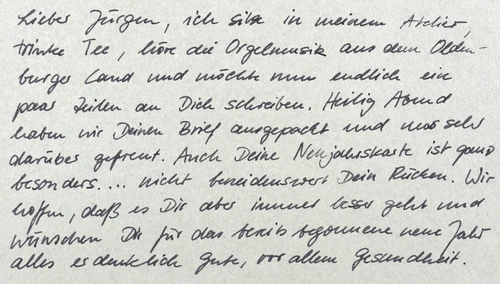 Lieber Jürgen, ich sitze in meinem Atelier,
trinke Tee, höre die Orgelmusik aus dem Olden-
burger Land und möchte nun endlich ein
paar Zeilen an Dich schreiben. Heilig Abend
haben wir Deinen Brief ausgepackt und uns sehr
darüber gefreut. Auch Deine Neujahrskarte ist ganz
besonders.... nicht beneidenswert Dein Rücken. Wir
hoffen, daß es Dir aber immer besser geht und
wünschen Dir für das bereits begonnene neue Jahr
alles erdenklich gute, vor allem Gesundheit.